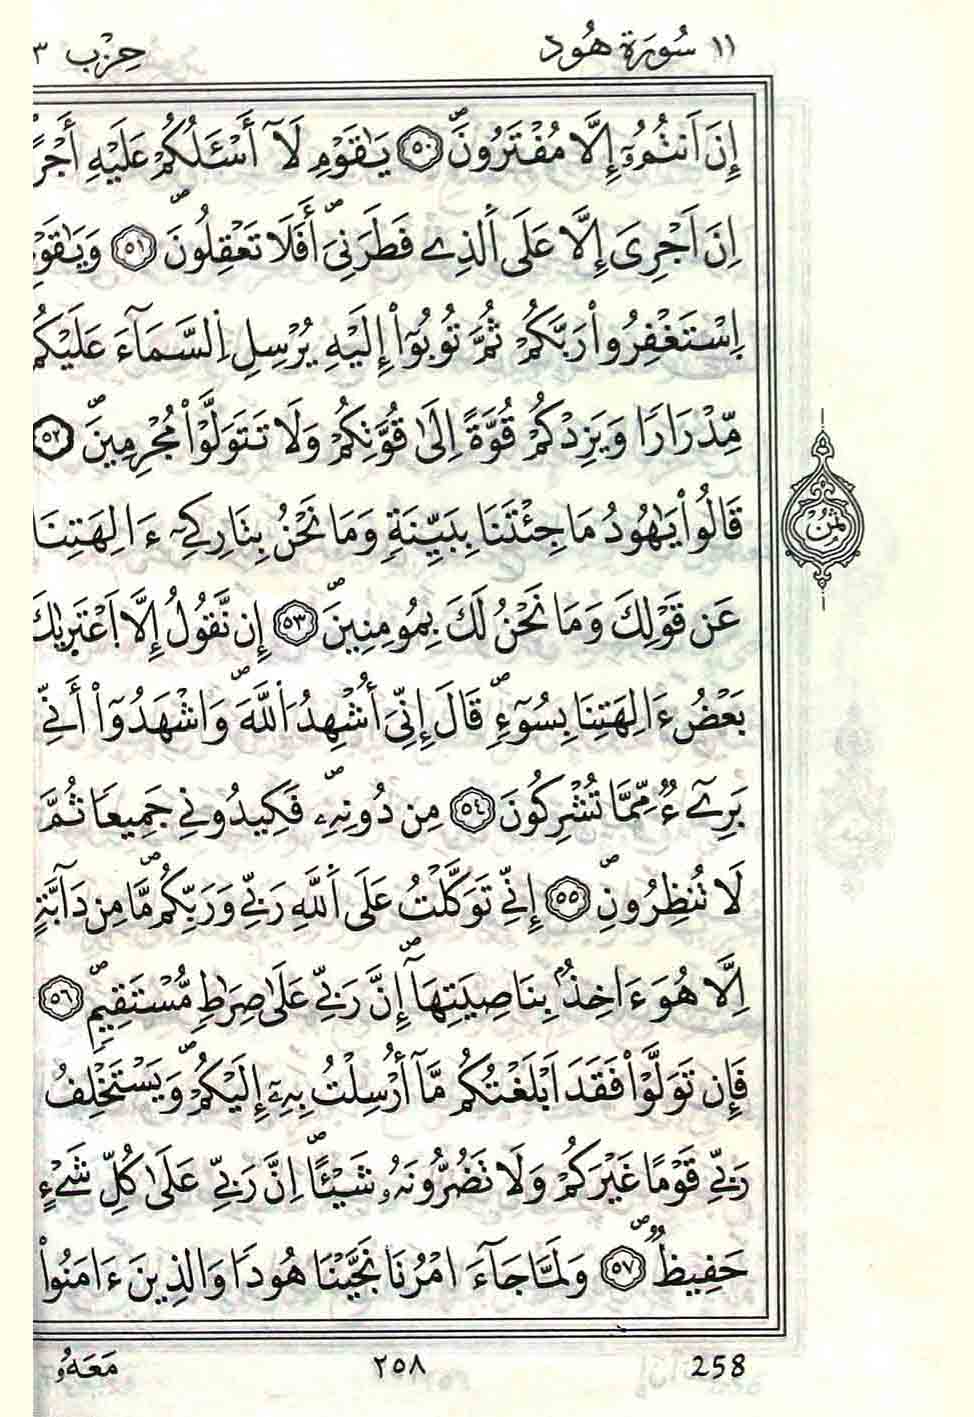 ١١ سُورَة هُود حِزْب ٣
إِنَ اَنتُمُۥٓ إِلَّا مُفْتَرُونَۖ ٥٠ يَٰقَوْمِ لَآ أَسْـَٔلُكُمْ عَلَيْهِ أَجْرًا
اِنَ اَجْرِىَ إِلَّا عَلَى اَلذِے فَطَرَنِىٓۖ أَفَلَا تَعْقِلُونَۖ ٥١ وَيَٰقَوْمِ
اِسْتَغْفِرُواْ رَبَّكُمْ ثُمَّ تُوبُوٓاْ إِلَيْهِ يُرْسِلِ اِلسَّمَآءَ عَلَيْكُم
مِّدْرَارٗا وَيَزِدْكُمْ قُوَّةً اِلَىٰ قُوَّتِكُمْ وَلَا تَتَوَلَّوْاْ مُجْرِمِينَۖ ٥٢
قَالُواْ يَٰهُودُ مَا جِئْتَنَا بِبَيِّنَةٖ وَمَا نَحْنُ بِتَارِكِےٓ ءَالِهَتِنَا
عَن قَوْلِكَ وَمَا نَحْنُ لَكَ بِمُومِنِينَۖ ٥٣ إِن نَّقُولُ إِلَّا اَعْتَرِىٰكَ
بَعْضُ ءَالِهَتِنَا بِسُوٓءٖۖ قَالَ إِنِّىٓ أُشْهِدُ اُللَّهَۖ وَاشْهَدُوٓاْ أَنِّے
بَرِےٓءٞ مِّمَّا تُشْرِكُونَ ٥٤ مِن دُونِهِۦۖ فَكِيدُونِے جَمِيعٗا ثُمَّ
لَا تُنظِرُونِۖ ٥٥ إِنِّے تَوَكَّلْتُ عَلَى اَللَّهِ رَبِّے وَرَبِّكُمۖ مَّا مِن دَآبَّةٍ
اِلَّا هُوَ ءَاخِذُۢ بِنَاصِيَتِهَآۖ إِنَّ رَبِّے عَلَىٰ صِرَٰطٖ مُّسْتَقِيمٖۖ ٥٦
فَإِن تَوَلَّوْاْ فَقَدَ اَبْلَغْتُكُم مَّآ أُرْسِلْتُ بِهِۦٓ إِلَيْكُمْۖ وَيَسْتَخْلِفُ
رَبِّے قَوْمًا غَيْرَكُمْ وَلَا تَضُرُّونَهُۥ شَيْـٔاًۖ اِنَّ رَبِّے عَلَىٰ كُلِّ شَےْءٍ
حَفِيظٞۖ ٥٧ وَلَمَّا جَآءَ امْرُنَا نَجَّيْنَا هُودٗا وَالذِينَ ءَامَنُواْ
ثُمُن
258 ٢٥٨ مَعَهُۥ